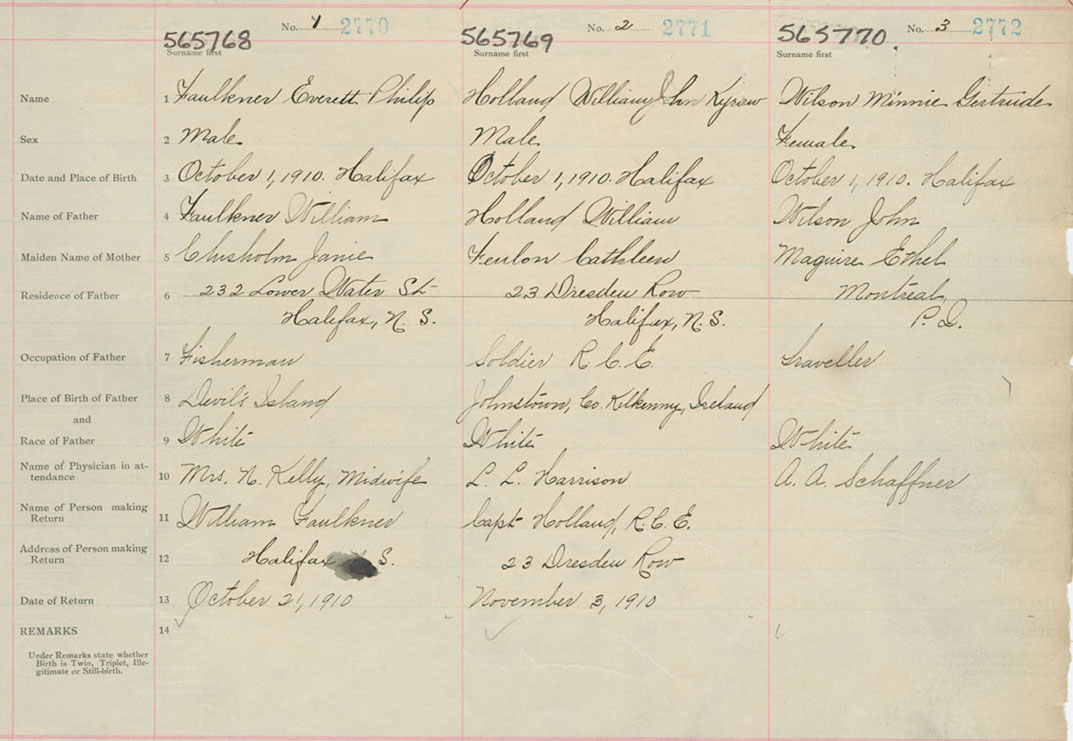 No. 1 2770 No. 2 2771 No. 3 2772
565768 565769 565770
Surname first Surname first Surname first
Name 1 Faulkner Everett Philip Holland William John Wilson Minnie Gertrude
Sex 2 Male Male Female
Date and Place of Birth 3 October 1, 1910. Halifax October 1, 1910. Halifax October 1, 1910. Halifax
Name of Father 4 Faulkner William Holland William Wilson John
Maiden Name of Mother 5 Chisholm Janie Fenlon Cathleen Maguire Ethel
Residence of Father 6 232 Lower Water St 23 Dresden Row Montreal,
Halifax, N. S. Halifax, N. S. P. Q.
Occupation of Father 7 Fisherman Soldier R. C. E. Traveller
Place of Birth of Father 8 Devil's Island Johnstown, Co. Kilkenny, Ireland
and
Race of Father 9 White White White
Name of Physician in at-
tendance 10 Mrs. N. Kelly, Midwife L. L. Harrison A. A. Schaffner
Name of Person making
Return 11 William Faulkner Capt Holland, R. C. E.
Address of Person making
Return 12 Halifax S. 23 Dresden Row
Date of Return 13 October 21, 1910 November 3, 1910
REMARKS 14
Under Remarks state whether
Birth is Twin, Triplet, Ille-
gitimate or Still-birth.